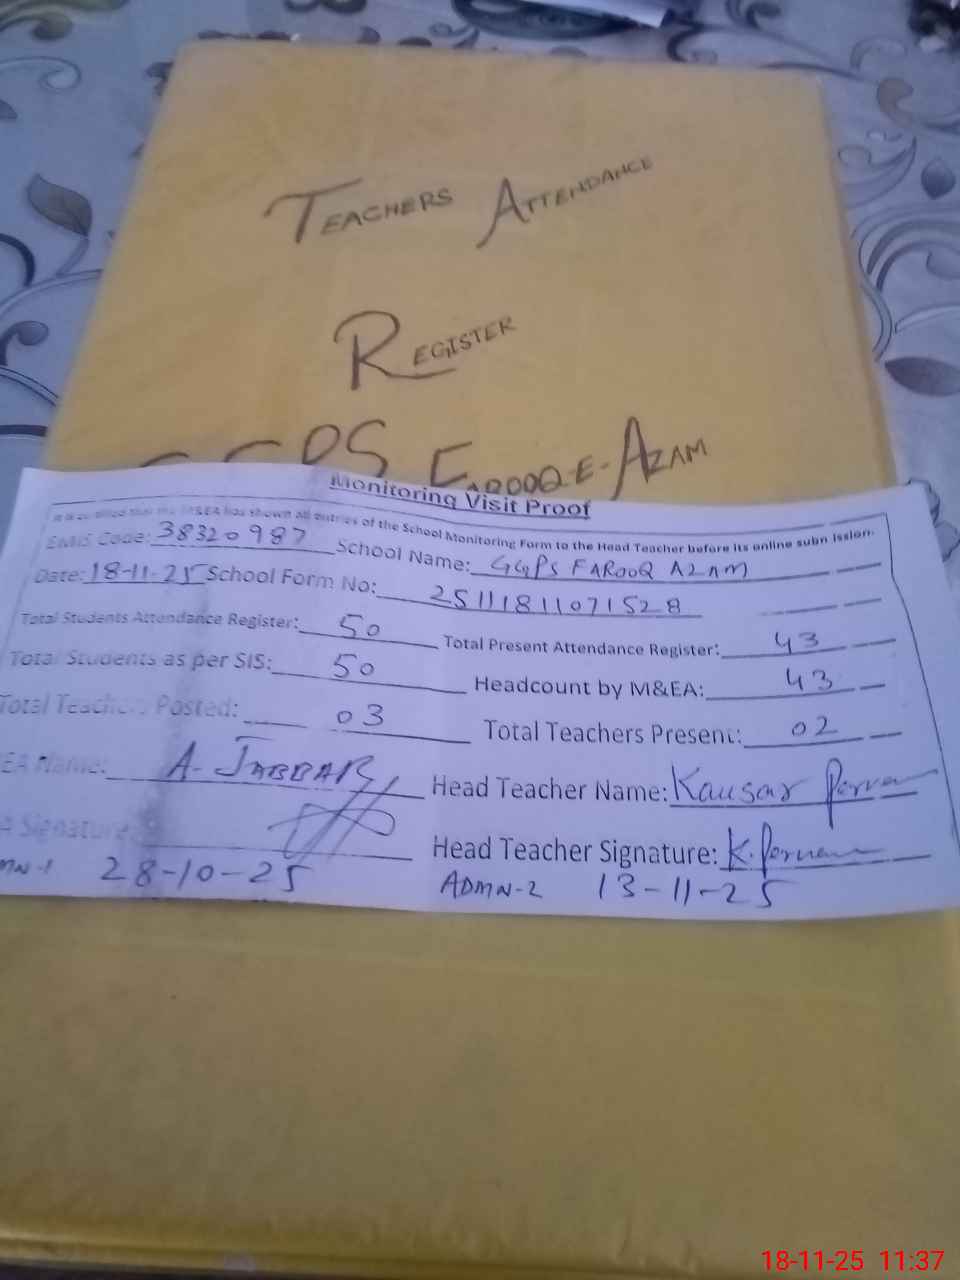 TEACHERS ATTENDANCE
REGISTER
FAROOQ-E-AZAM
Monitoring Visit Proof
It is certified that the M&EA has shown all entries of the School Monitoring Form to the Head Teacher before its online submission.
EMIS Code: 38320987 School Name: GGPS FAROOQ AZAM
Date: 18-11-25 School Form No: 2511181107 1528
Total Students Attendance Register: 50 Total Present Attendance Register: 43
Total Students as per SIS: 50 Headcount by M&EA: 43
Total Teachers Posted: 03 Total Teachers Present: 02
EA Name: A. JABBAR Head Teacher Name: Kausar
A Signature: Head Teacher Signature: K.
MN-1 28-10-25 ADMN-2 13-11-25
18-11-25 11:37